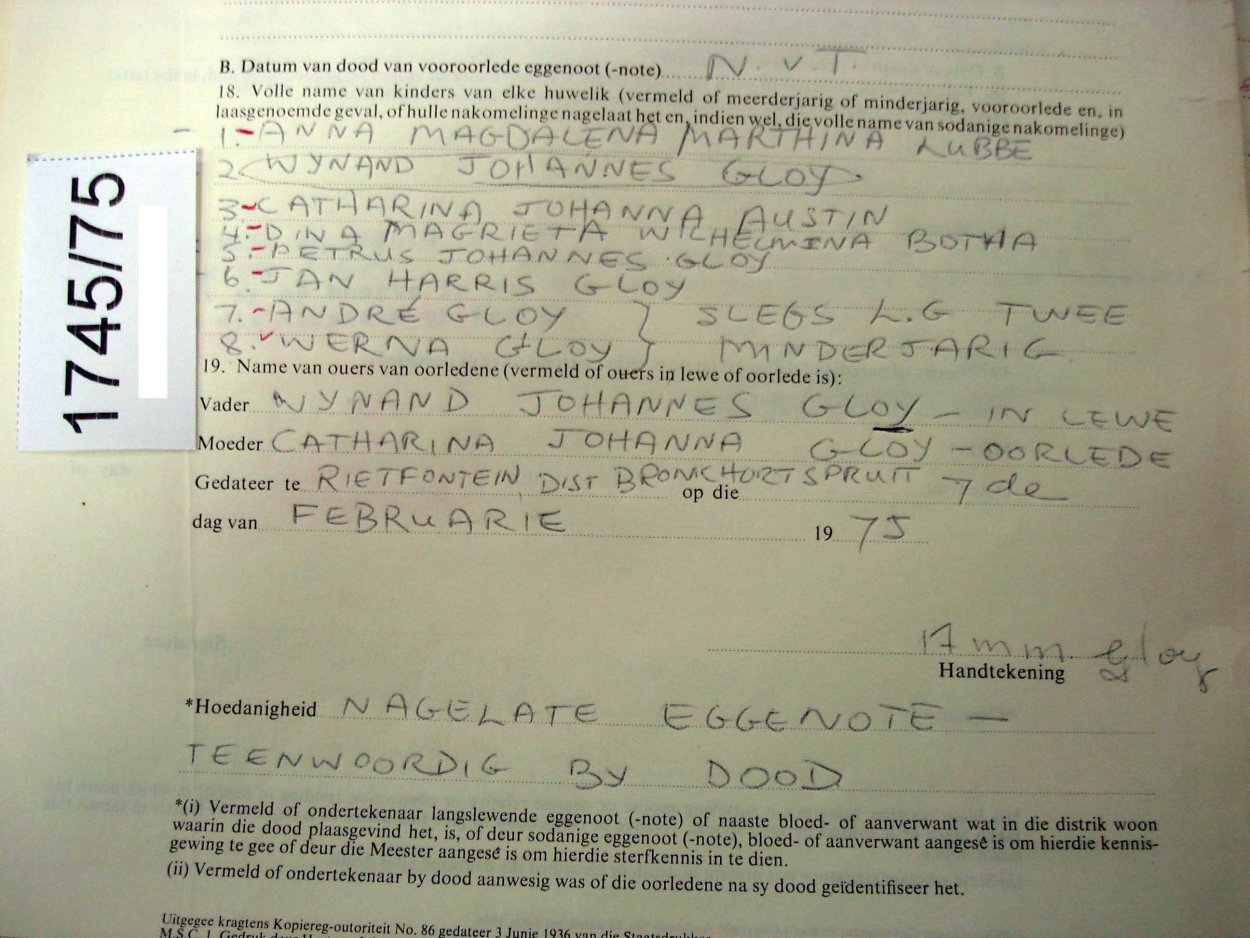 B. Datum van dood van vooroorlede eggenoot (-note) N.V.T.
18. Volle name van kinders van elke huwelik (vermeld of meerderjarig of minderjarig, vooroorlede en, in
laasgenoemde geval, of hulle nakomelinge nagelaat het en, indien wel, die volle name van sodanige nakomelinge)
1. ANNA MAGDALENA MARTHINA LUBBE
2 WYNAND JOHANNES GLOY
3 CATHARINA JOHANNA AUSTIN
4. DINA MAGRIETA WILHELMINA BOTHA
5. PETRUS JOHANNES GLOY
6. JAN HARRIS GLOY
7. ANDRÉ GLOY } SLEGS L.G TWEE
8. WERNA GLOY } MINDERJARIG
19. Name van ouers van oorledene (vermeld of ouers in lewe of oorlede is):
Vader WYNAND JOHANNES GLOY – IN LEWE
Moeder CATHARINA JOHANNA GLOY – OORLEDE
Gedateer te RIETFONTEIN, DIST BRONCHORTSPRUIT op die 7de
dag van FEBRUARIE 19 75
1745/75
mm Gloy
Handtekening
*Hoedanigheid NAGELATE EGGENOTE –
TEENWOORDIG BY DOOD
*(i) Vermeld of ondertekenaar langslewende eggenoot (-note) of naaste bloed- of aanverwant wat in die distrik woon
waarin die dood plaasgevind het, is, of deur sodanige eggenoot (-note), bloed- of aanverwant aangesê is om hierdie kennis-
gewing te gee of deur die Meester aangesê is om hierdie sterfkennis in te dien.
(ii) Vermeld of ondertekenaar by dood aanwesig was of die oorledene na sy dood geïdentifiseer het.
Uitgegee kragtens Kopiereg-outoriteit No. 86 gedateer 3 Junie 1936 van die Staatsdrukker